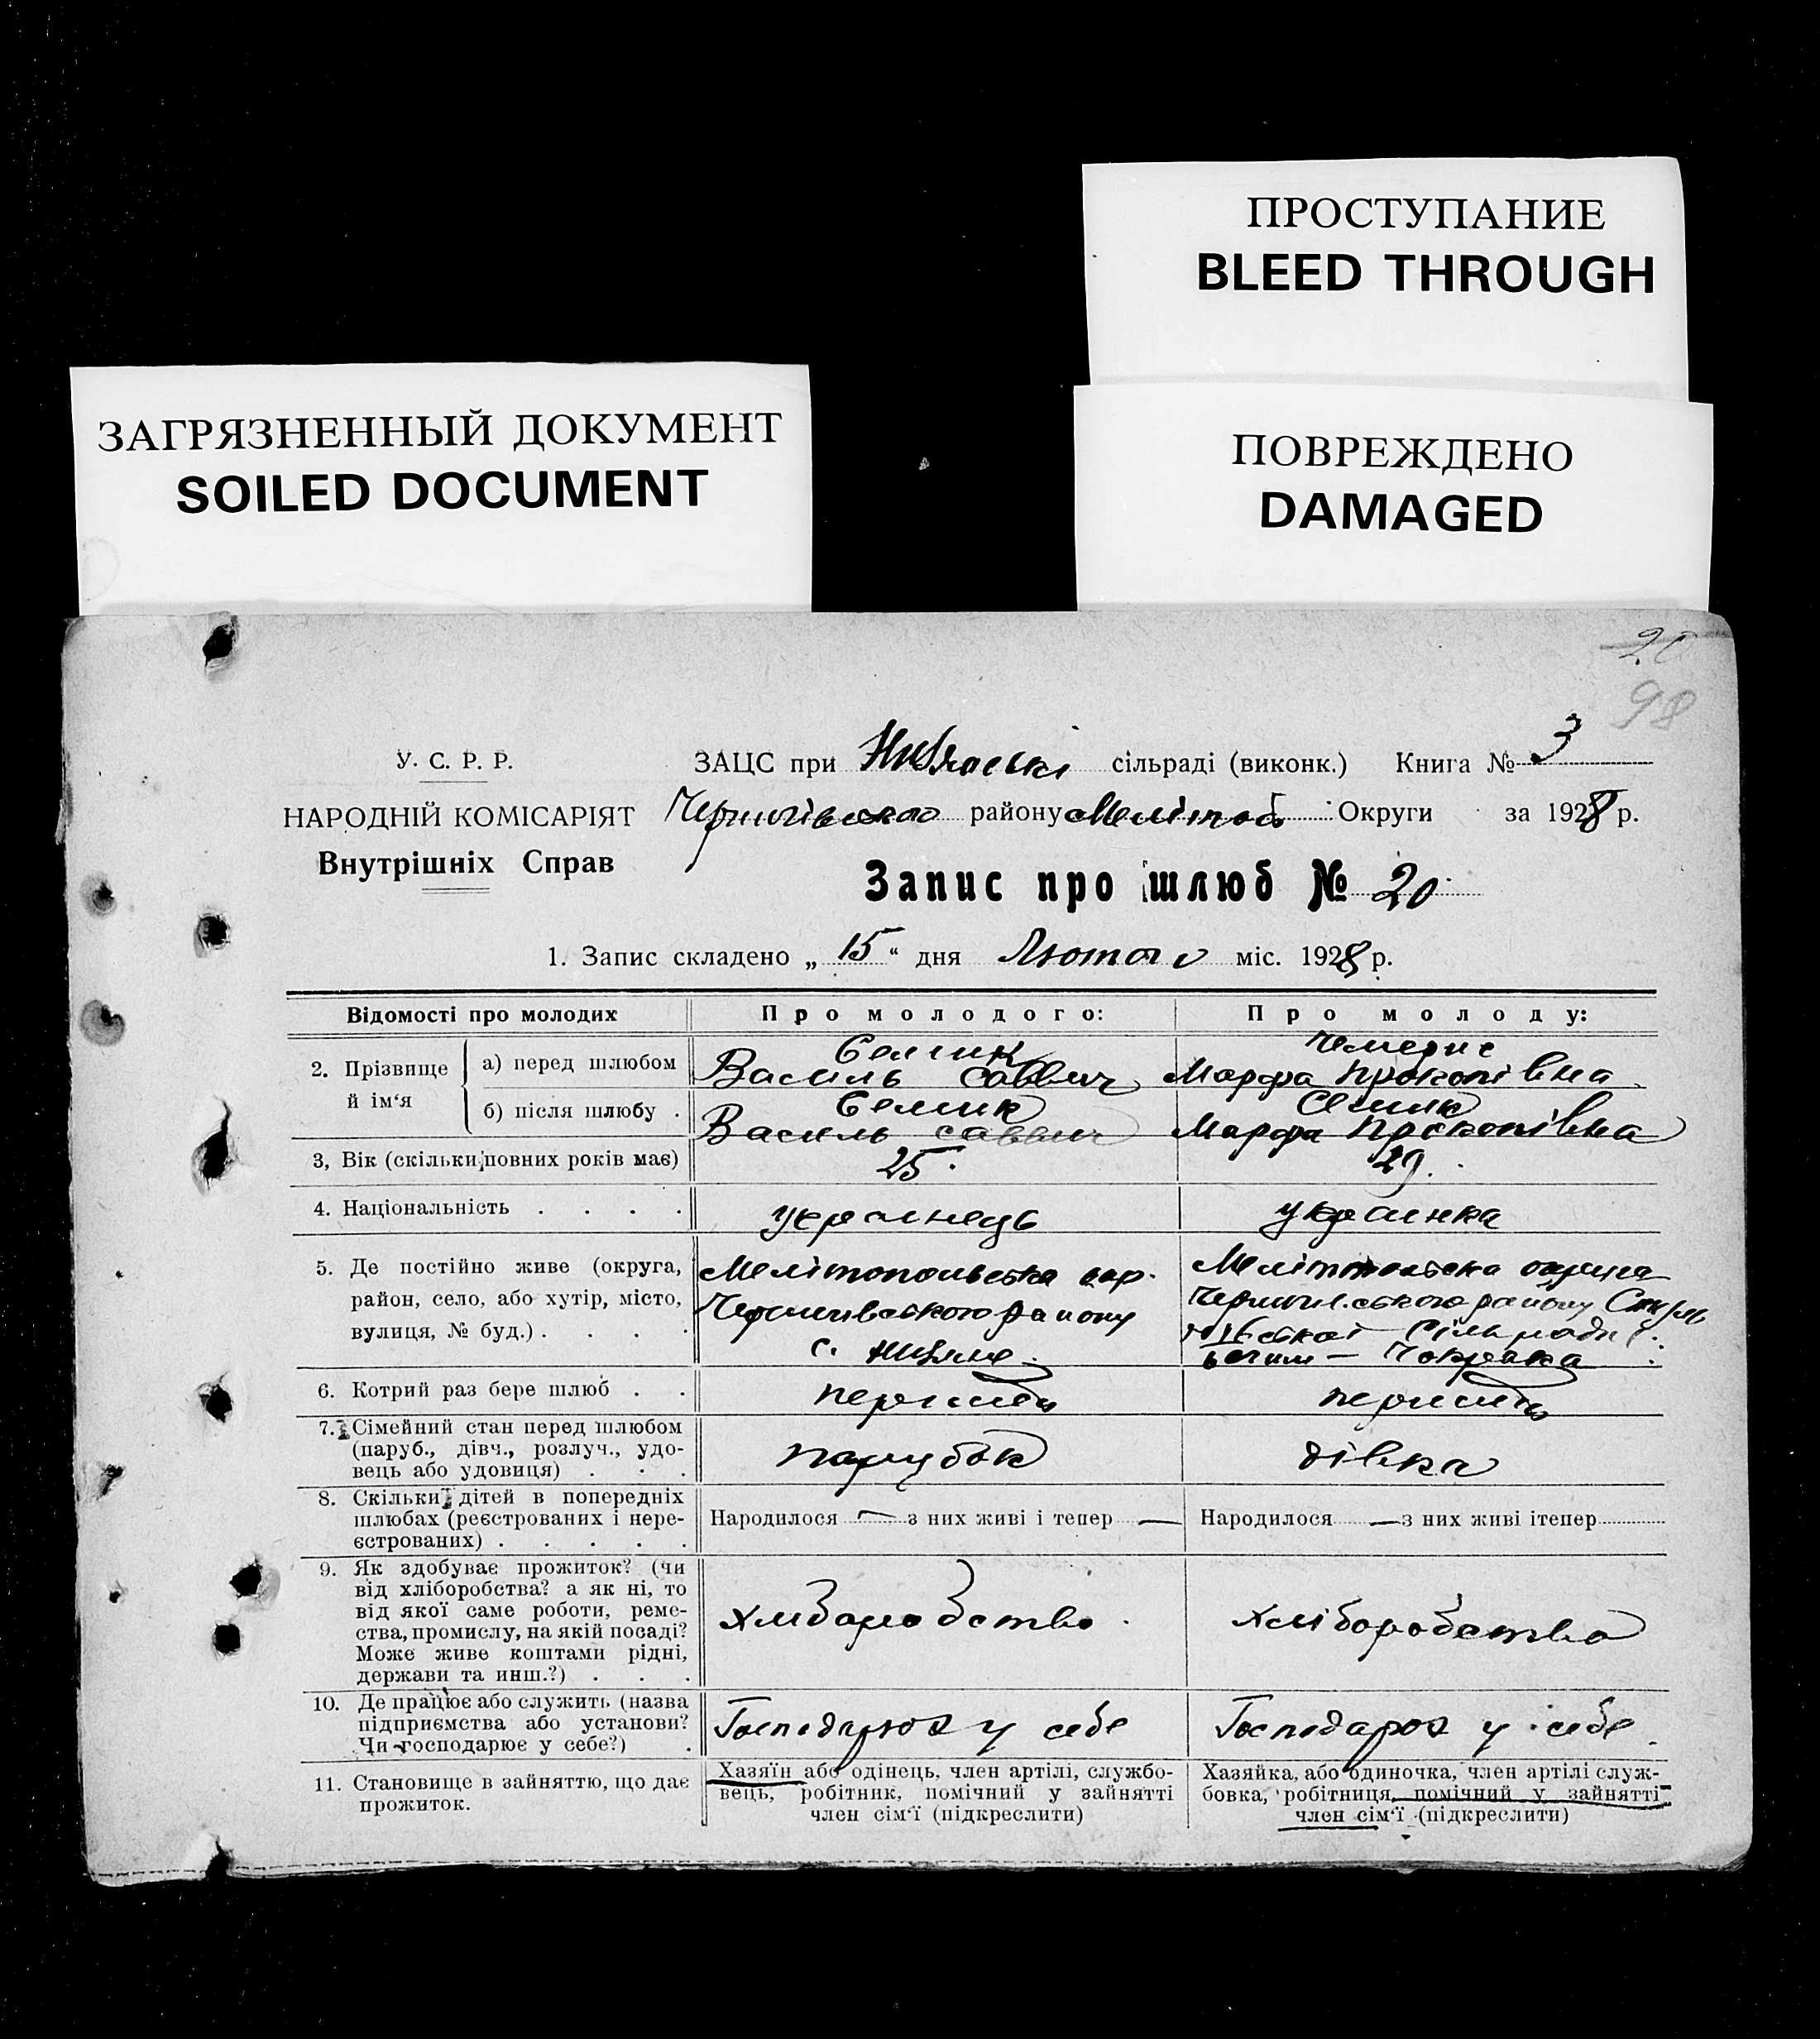 ПРОСТУПАНИЕ
BLEED THROUGH
ЗАГРЯЗНЕННЫЙ ДОКУМЕНТ
SOILED DOCUMENT
ПОВРЕЖДЕНО
DAMAGED
20
98
У. С. Р. Р.
НАРОДНІЙ КОМІСАРІЯТ
Внутрішніх Справ
ЗАЦС при сільраді (виконк.) Книга № 3
Чернигівського району Мелітоп Округи за 1928 р.
Запис про шлюб № 20
1. Запис складено „ 15 “ дня Лютого міс. 1928 р.
Відомості про молодих
Про молодого:
Про молоду:
2. Прізвище й ім‘я
а) перед шлюбом
Семик
Василь Саввич
Чемерис
Марфа Прокопівна
б) після шлюбу .
Семик
Василь Саввич
Семик
Марфа Прокопівна
3, Вік (скільки повних років має)
25
29.
4. Національність . . . .
українець
українка
5. Де постійно живе (округа,
район, село, або хутір, місто,
вулиця, № буд.) . . . .
Мелітопольська окр.
Чернигівського району
с.
Мелітопольська округа
Чернигівського району
сільради
6. Котрий раз бере шлюб . .
первий
первий
7. Сімейний стан перед шлюбом
(паруб., дівч., розлуч., удо-
вець або удовиця) . . .
парубок
дівка
8. Скільки дітей в попередніх
шлюбах (реєстрованих і нере-
єстрованих) . . . . .
Народилося — з них живі і тепер —
Народилося — з них живі ітепер
9. Як здобуває прожиток? (чи
від хліборобства? а як ні, то
від якої саме роботи, реме-
ства, промислу, на якій посаді?
Може живе коштами рідні,
держави та инш.?) . . .
хліборобство
хліборобство
10. Де працює або служить (назва
підприємства або установи?
Чи господарює у себе?) .
Господарює у себе
Господарює у себе
11. Становище в зайняттю, що дає
прожиток.
Хазяїн або одінець, член артілі, службо-
вець, робітник, помічний у зайнятті
член сім‘ї (підкреслити)
Хазяйка, або одиночка, член артілі служ-
бовка, робітниця, помічний у зайнятті
член сім‘ї (підкреслити)